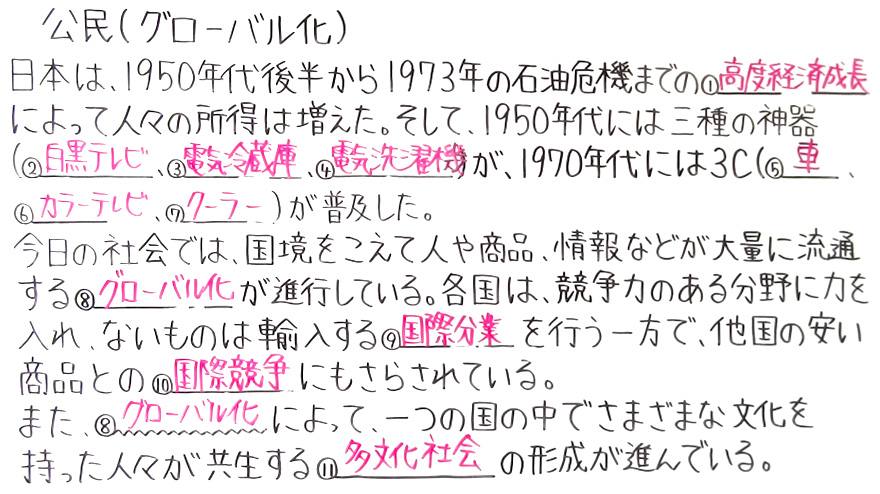 公民(グローバル化)
日本は、1950年代後半から1973年の石油危機までの①高度経済成長
によって人々の所得は増えた。そして、1950年代には三種の神器
(②白黒テレビ、③電気冷蔵庫、④電気洗濯機)が、1970年代には3C(⑤車、
⑥カラーテレビ、⑦クーラー)が普及した。
今日の社会では、国境をこえて人や商品、情報などが大量に流通
する⑧グローバル化が進行している。各国は、競争力のある分野に力を
入れ、ないものは輸入する⑨国際分業を行う一方で、他国の安い
商品との⑩国際競争にもさらされている。
また、⑧グローバル化によって、一つの国の中でさまざまな文化を
持った人々が共生する⑪多文化社会の形成が進んでいる。